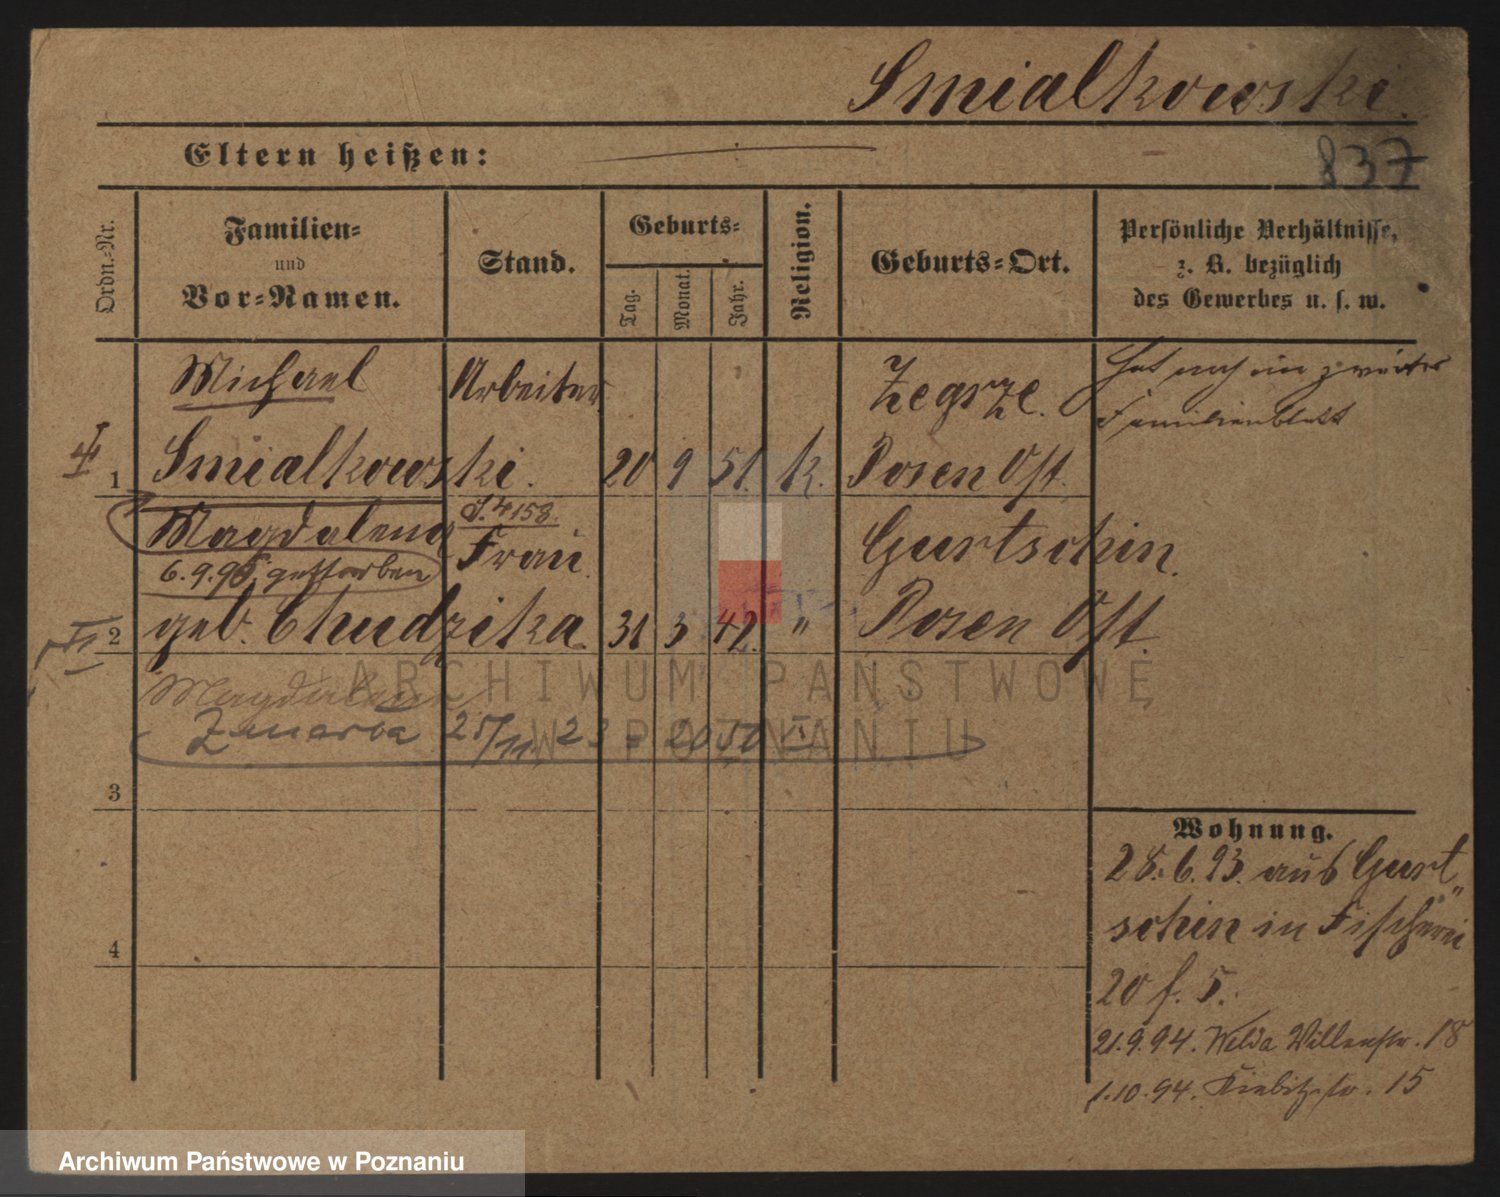 Smialkowski.
837
Eltern heißen:
Ordn.-Nr.
Familien-
und
Vor-Namen.
Stand.
Geburts-
Tag.
Monat.
Jahr.
Religion.
Geburts-Ort.
Persönliche Verhältnisse,
z. B. bezüglich
des Gewerbes u. s. w.
Michael Arbeiter Zegrze. Hat noch ein zweites
Familienblatt
1 Smialkowski. 20 9 51. k. Posen Ost.
Magdalena J. 4158. Frau. Gurtschin.
6.9.95 gestorben
2 geb. Chudzika. 31 3 42. " Posen Ost.
Magdalena
Zmarła 25/11 23 = 2050
3
4
Wohnung.
28.6.93. aus Gurt„
schin in Fischerei
20 f. 5.
21.9.94. Wilda Willenstr. 18
1.10.94. Kiebitzstr. 15
ARCHIWUM PAŃSTWOWE
W POZNANIU
Archiwum Państwowe w Poznaniu